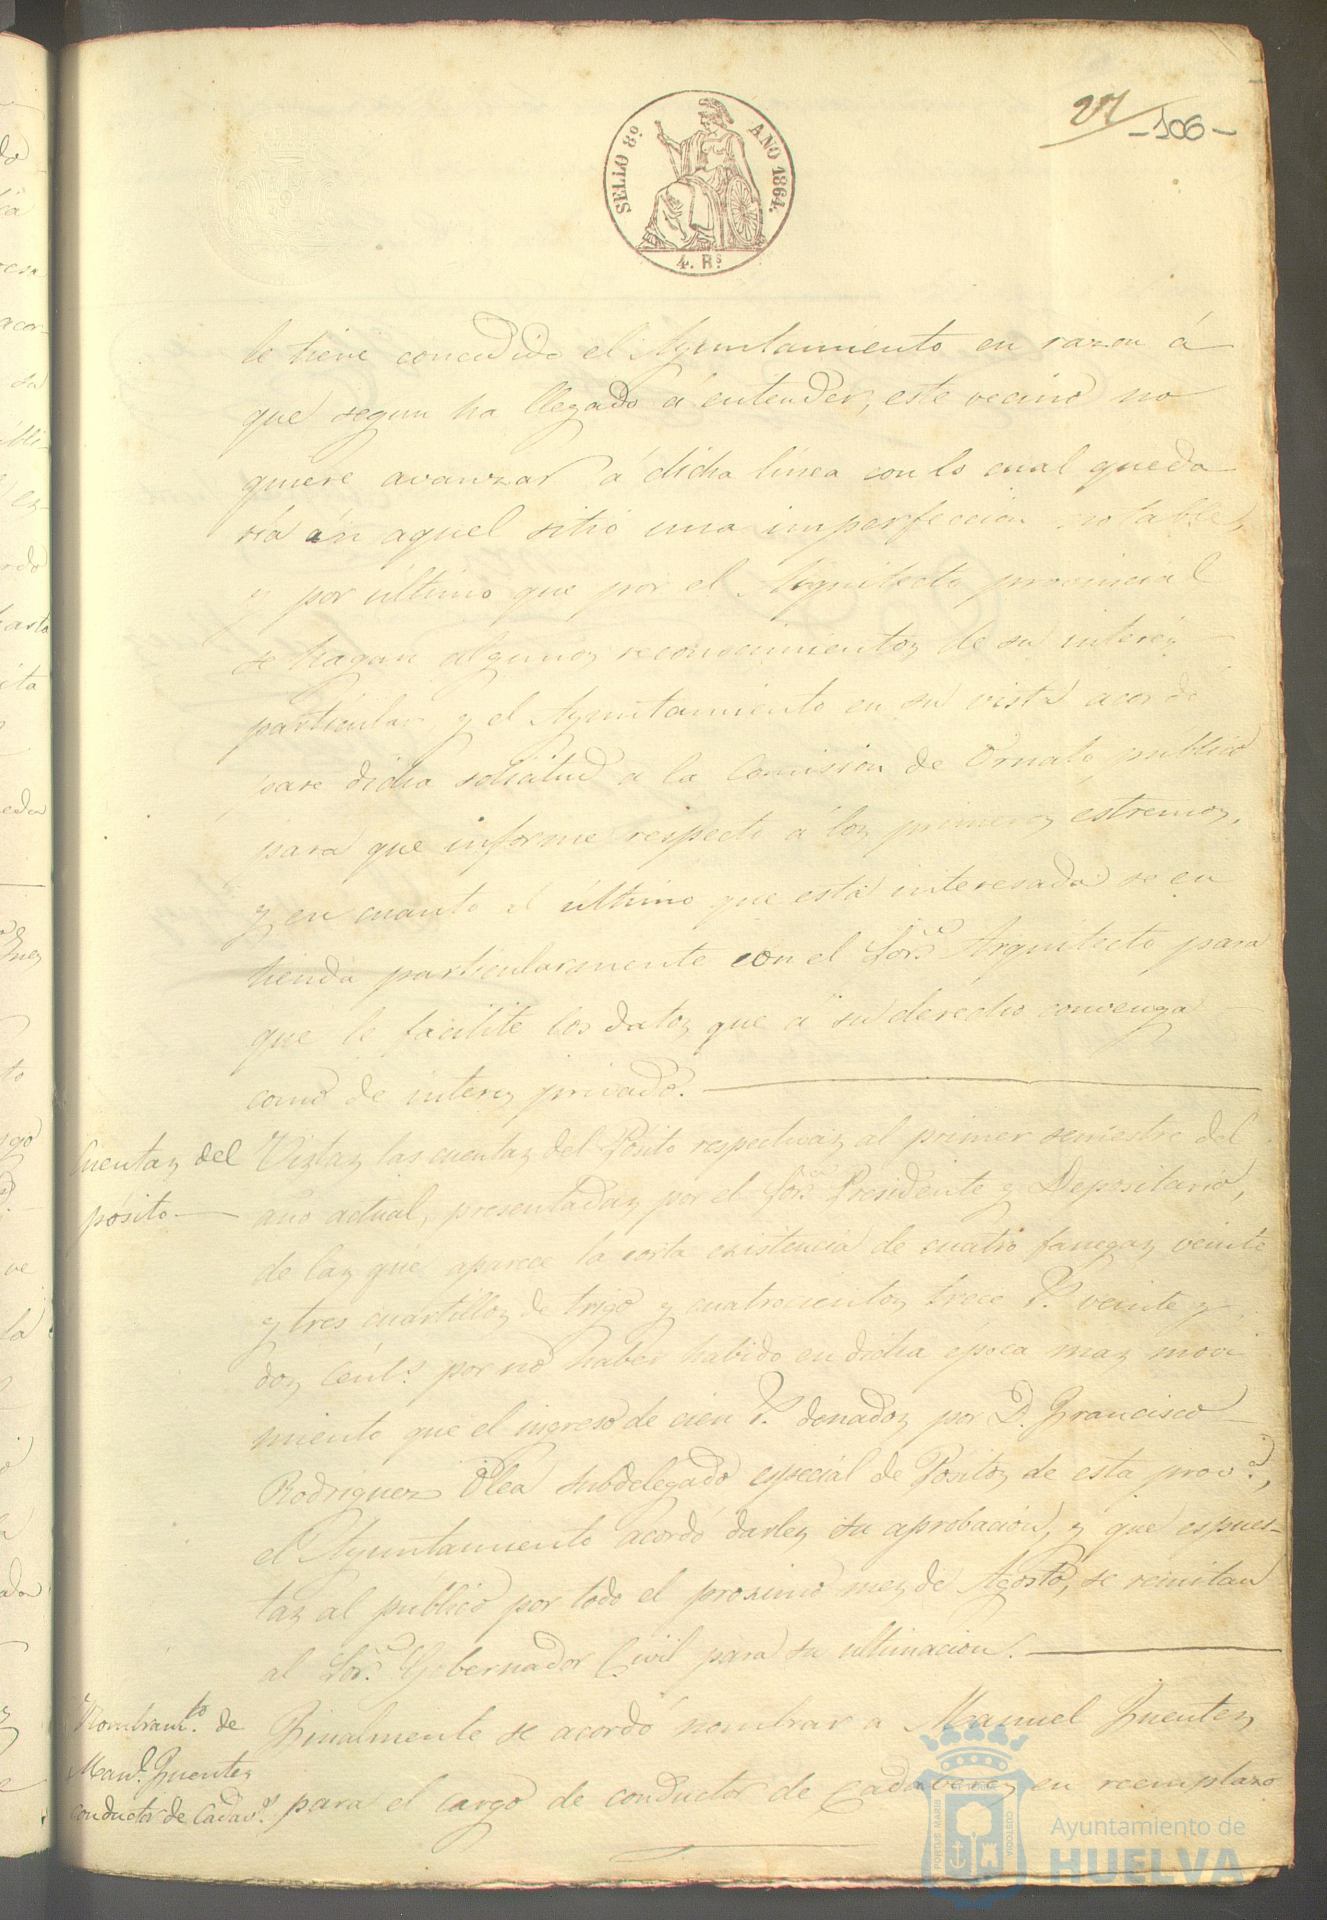 27 -106-
SELLO 8º. AÑO 1864.
4. Rs
le tiene concedido el Ayuntamiento en razon á
que segun ha llegado á entender, este vecino no
quiere avanzar á dicha línea con lo cual queda
ría en aquel sitio una imperfeccion notable,
y por último que por el Arquitecto provincial
se hagan algunos reconocimientos de su interés
particular y el Ayuntamiento en su vista acordó
pase dicha solicitud a la Comision de Ornato público
para que informe respecto á los primeros estremos,
y en cuanto al último que esta interesada se en
tienda particularmente con el Sor. Arquitecto para
que le facilite los datos que á su derecho convenga
como de interes privado.
Cuentas del
pósito
Vistas las cuentas del Pósito respectivas al primer semestre del
año actual, presentadas por el Sor. Presidente y Depositario,
de las que aparece la corta existencia de cuatro fanegas veinte
y tres cuartillos de trigo y cuatrocientos trece r.s veinte y
dos cént.s por no haber habido en dicha época mas movi
miento que el ingreso de cien r.s donados por D. Francisco
Rodriguez Olea Subdelegado especial de Pósitos de esta prov.a,
el Ayuntamiento acordó darles su aprobacion, y que espues-
tas al público por todo el proximo mes de Agosto, se remitan
al Sor. Gobernador Civil para su ultimacion.
Nombram.to de
Man.l Fuentes
conductor de Cadav.s
Finalmente se acordó nombrar a Manuel Fuentes
para el cargo de conductor de Cadaveres en reemplazo
PORTUS MARIS CUSTODIA
Ayuntamiento de
HUELVA